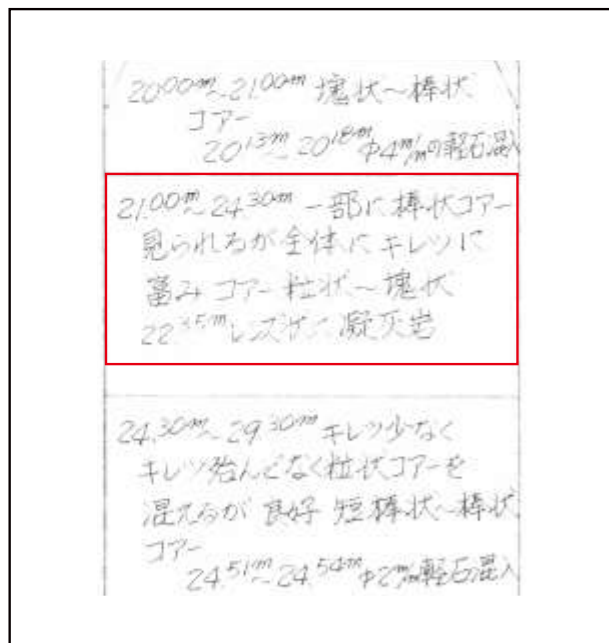 20.00m～21.00m 塊状～棒状
コアー
20.13m～20.18m φ4m/mの軽石混入
21.00m～24.30m 一部に棒状コアー
見られるが全体にキレツに
富みコアー粒状～塊状
22.35m レンズ状に凝灰岩
24.30m～29.30m キレツ少なく
キレツ殆んどなく粒状コアーを
混えるが良好 短棒状～棒状
コアー
24.51m～24.54m φ2m/m軽石混入